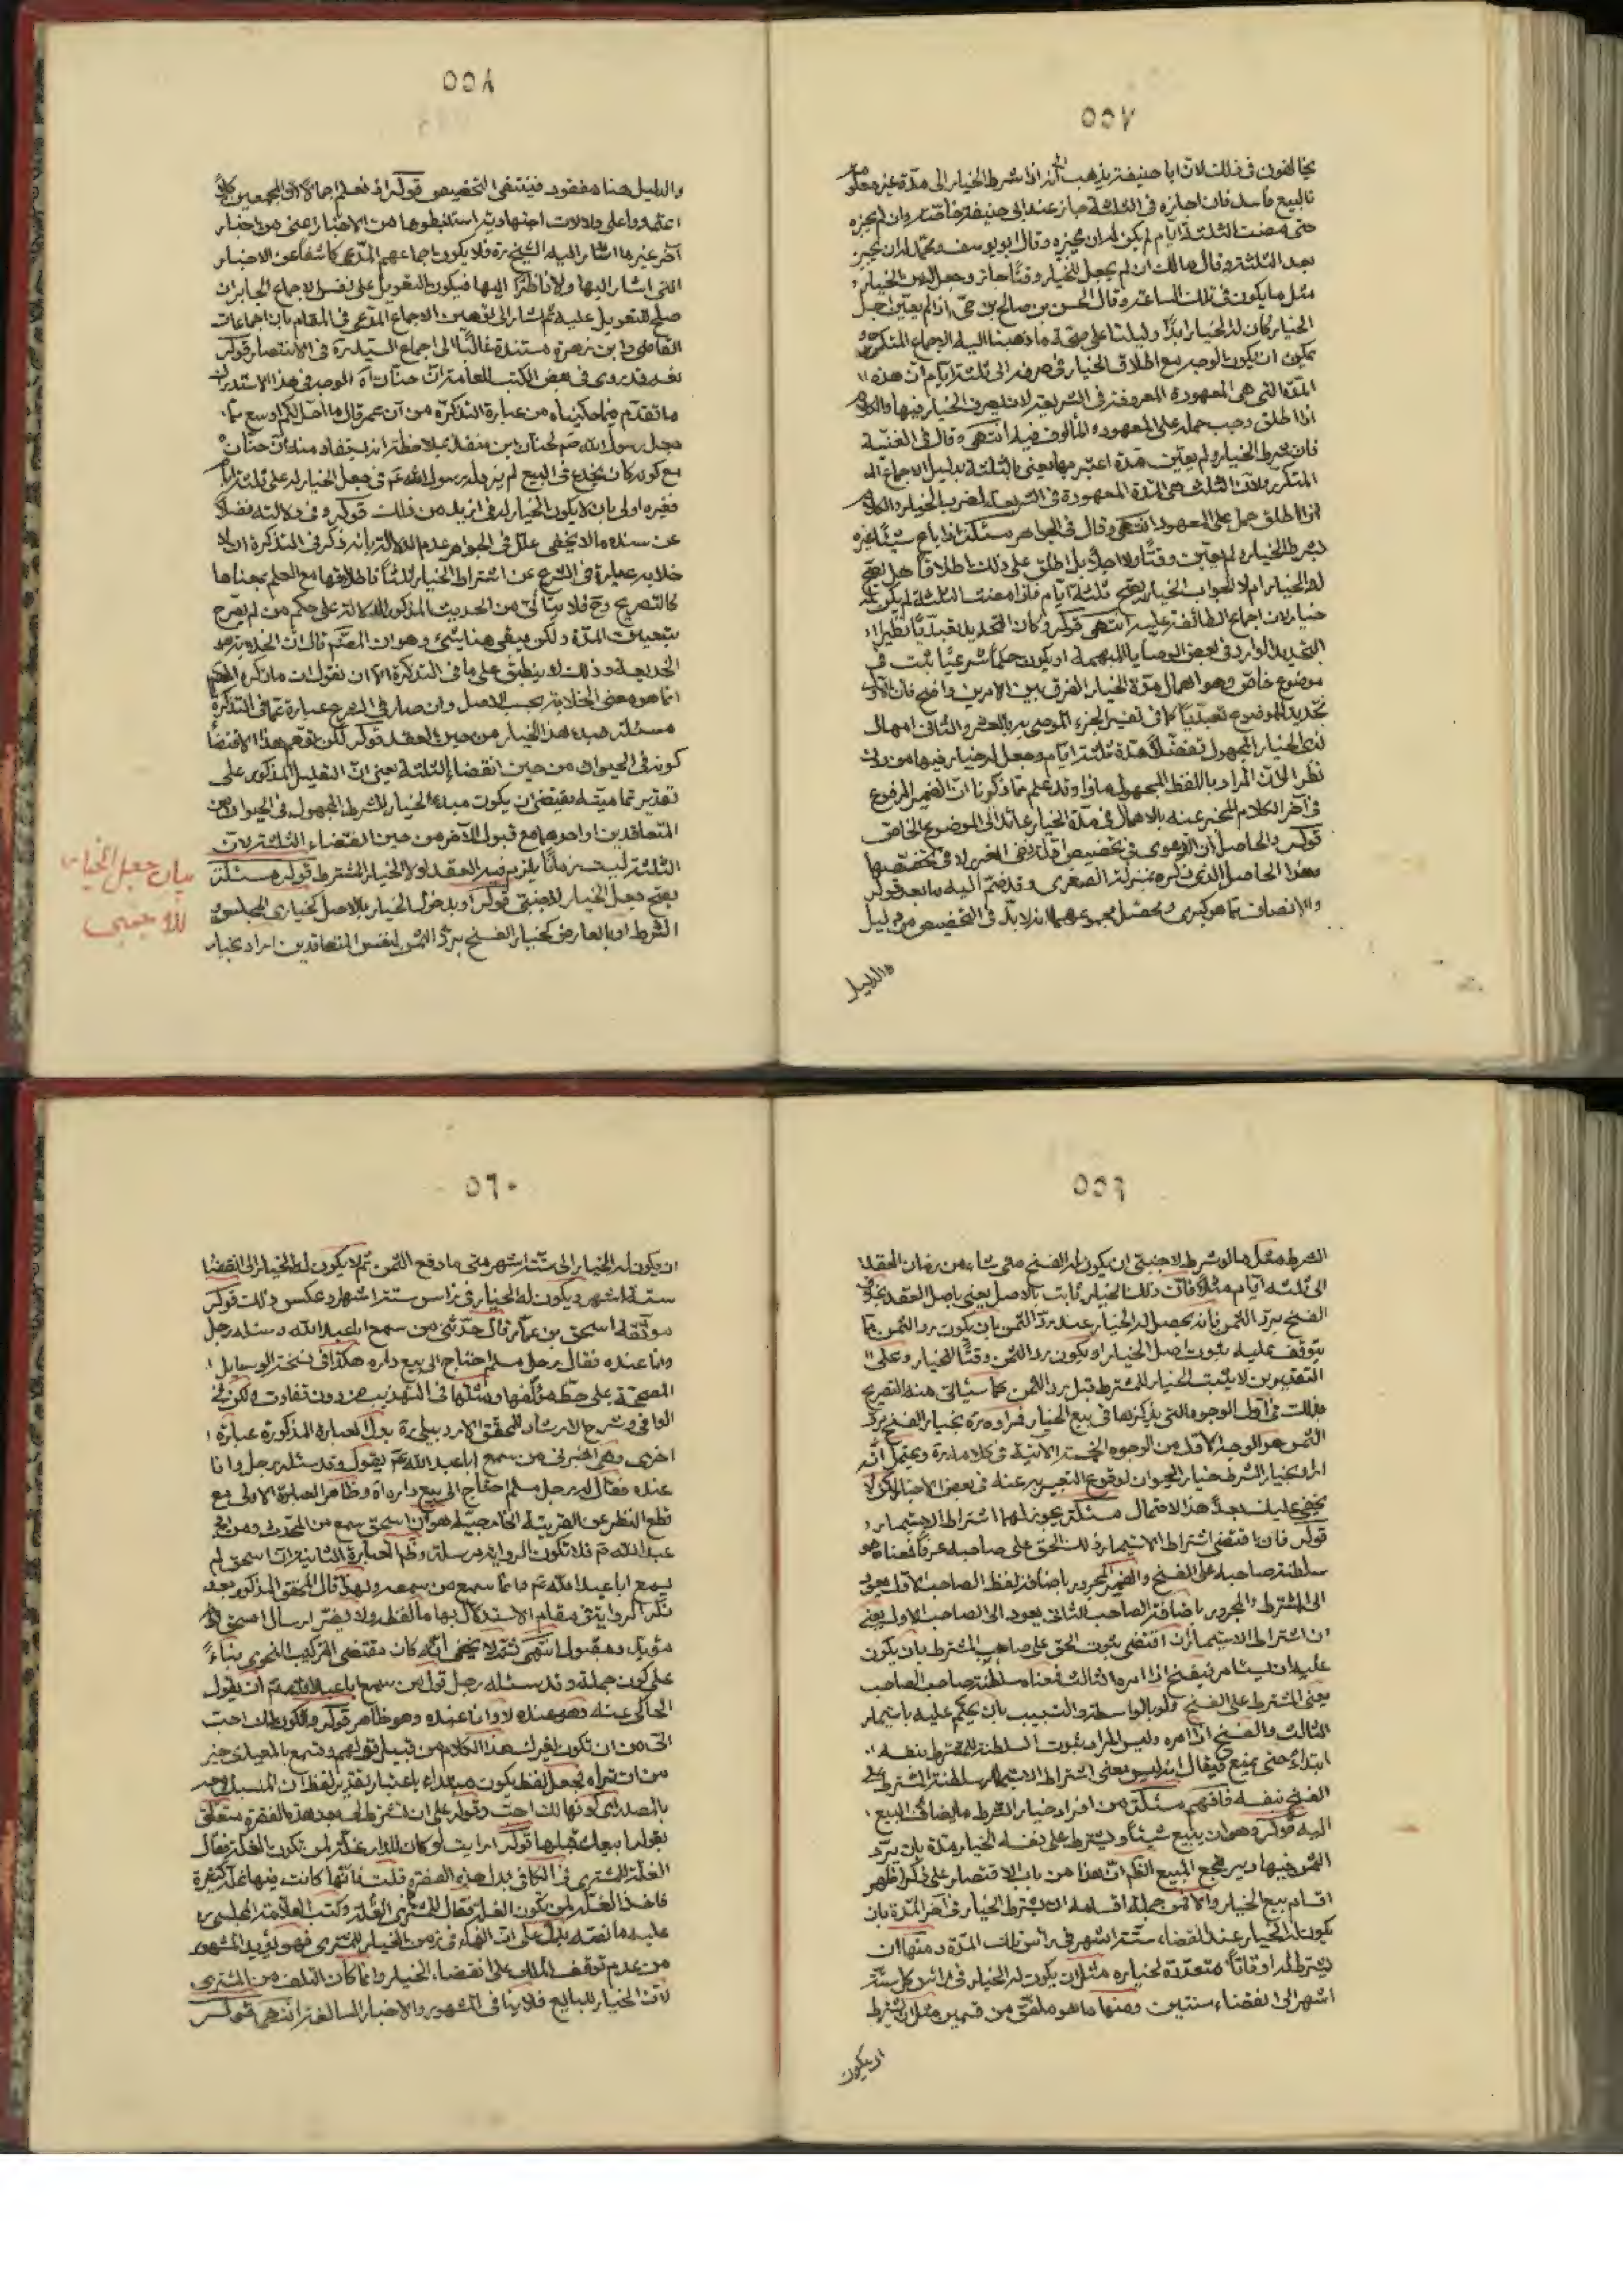 ٥٥٧
يخالفون في ذلك لان ابا حنيفة يذهب الى انه اذا شرط الخيار الى مدة غير معلومة
فالبيع فاسد فان اجازه في الثلثة جاز عند ابى حنيفة خاصة وان لم يجزه
حتى مضت الثلثة ايام لم يكن له ان يجيزه وقال ابو يوسف ومحمد له ان يجيز
بعد الثلثة وقال مالك ان لم يجعل للخيار وقتًا جاز وجعل له من الخيار
مثل ما يكون في تلك الساعة وقال الحسن بن صالح بن حىّ اذا لم يعيّن اجل
الخيار كان له الخيار ابدًا دليلنا على صحة ما ذهبنا اليه الاجماع المتكرر و
يمكون ان يكون الوجه مع اطلاق الخيار في صرفه الى ثلثة ايام ان هذه
المدة التي هى المعهودة المعروفة في الشريعة لان يصرف الخيار فيها والكلام
اذا اطلق وجب حمله على المعهود المألوف فيه انتهى وقال في الغنية
فان شرط الخيار ولم يعيّن مدة اعتبر مها يعنى بالثلثة بدليل الاجماع الم
المتكرر ولان الثلث هى المدة المعهودة في الشريعة لضرب الخيار والكلام
اذا اطلق حمل على المعهود انتهى وقال في الجواهر مسئلة اذا باع شيئًا غيره
بشرط الخيار ولم يعيّن وقتًا ولا اجلًا بل اطلق على ذلك اطلاقًا هل يصح
له الخيار ام لا الجواب الخيار يصح ثلثة ايام فاذا مضت الثلثة لم يكن له
خيار لان اجماع الطائفة عليه انتهى قوله وكان التحديد تعبديًا نظير
التحديد الوارد في بعض الوصايا المبهمة او يكون حكمًا شرعيًا ثبت في
موضوع خاص وهو اهمال مدة الخيار الفرق بين الامرين واضح فان الاول
تحديد للموضوع تعبديًا كما في تفسير الجزء الموصى به بالعشر والثانى امهال
لذى الخيار المجهول تفضلًا مدة ثلثة ايام وجعل له خيار فيها من دون
نظر الى ان المراد باللفظ المجهول ماذا وقد علم مما ذكرنا ان الضمير المرفوع
في آخر الكلام المخبر عنه بالاهمال في مدة الخيار عائد الى الموضوع الخاص
قوله والحاصل ان الدعوى في تخصيص ادلة نفى الغرر لا في تخصصها
هذا الحاصل الذى ذكره بمنزلة الصغرى وقد ضم اليه ما بعد قوله
والانصاف بما هو كبرى ومحصل مجموعهما انه لا بدّ في التخصيص من دليل
والدليل
٥٥٨
والدليل هنا مفقود فينتفى التخصيص قوله اذ نعلم اجمالًا ان المجمعين كانوا
اعتمدوا على دلالات اجتهادية استنبطوها من الاخبار عنى من اخبار
آخر غير ما اشار اليه الشيخ ره فلا يكون اجماعهم المدعى كاشفًا عن الاخبار
التى اشار اليها ولا ناظرًا اليها فيكون التعويل على نفس الاجماع الجابر ان
صلح للتعويل عليه ثم اشار الى توهين الاجماع المدعى في المقام بان اجماعات
القاضى وابن زهرة مستندة غالبًا الى اجماع السيد ره في الانتصار قوله
نعم قد روى في بعض الكتب للعامة ان حنّان آه الوجه في هذا الاستدراك
ما تقدم فيما حكيناه من عبارة التذكرة من ان عمر قال ما اجد لكم اوسع مما
جعل رسول الله ص لحنان بن منقذ بملاحظة انه يستفاد منه ان حنّان
مع كونه كان يخدع في البيع لم يزد له رسول الله ص في جعل الخيار له على ثلثة ايام
فغيره اولى بان لا يكون الخيار له في ازيد من ذلك قوله وفي دلالته فضلًا
عن سنده ما لا يخفى علل في الجواهر عدم الدلالة بانه ذكر في التذكرة ان لا
خلابة عبارة في الشرع عن اشتراط الخيار ثلثًا فاطلاقها مع العلم بمعناها
كالتصريح وح فلا يتأتى من الحديث المذكور الدلالة على حكم من لم يصرح
بتعيين المدة ولكن يبقى هنا شىء وهو ان المصنف قال ان الخلابة
الخديعة وذلك لا ينطبق على ما في التذكرة الا ان نقول ان ما ذكره المصنف
انما هو معنى الخلابة بحسب الاصل وان صار في الشرع عبارة عما في التذكرة
مسئلة مبدء هذا الخيار من حين العقد قوله لكن تقدم هذا الاقتضا
كونه في الحيوان من حين انقضاء الثلثة يعنى ان التعليل المذكور على
تقدير تماميته يقتضى ان يكون مبدء الخيار للشرط المجهول في الحيوان من
المتعاقدين او احدهما مع قبول الآخر من حين انقضاء الثلثة لان
الثلثة ليست زمانًا يلزم فيه العقد لولا الخيار المشترط قوله مسئلة
يصح جعل الخيار لاجنبى قوله او بدخول الخيار بالاصل كخيارى المجلس و
الشرط او بالعارض كخيار الفسخ برد الثمن لنفس المتعاقدين اراد بخيار
بيان جعل الخيار
للاجنبى
٥٥٩
الشرط مثل ما لو شرط لاجنبى ان يكون له الفسخ متى شاء من زمان العقد
الى ثلثة ايام مثلًا فان ذلك الخيار ثابت بالاصل يعنى باصل العقد بخلاف
الفسخ برد الثمن فانه يحصل له الخيار عند رد الثمن بان يكون رد الثمن مما
يتوقف عليه ثبوت اصل الخيار او يكون رد الثمن وقتًا للخيار وعلى
التقديرين لا يثبت الخيار للمشترط قبل رد الثمن كما سيأتى منه التصريح
بذلك في اول الوجوه التى يذكرها في بيع الخيار فمراده ره بخيار الفسخ برد
الثمن هو الوجه الاول من الوجوه الخمسة الآتية في كلامه ره ويحتمل انه
اراد بخيار الشرط خيار الحيوان لوقوع التعبير به عنه في بعض الاخبار لكن لا
يخفى عليك بعد هذا الاحتمال مسئلة يجوز لهما اشتراط الاستيمار
قوله فان اقتضى اشتراط الاستيمار ذلك الحق على صاحبه عرفًا فمعناه هو
سلطنة صاحبه على الفسخ والضمير المجرور باضافة لفظ الصاحب الاول يعود
الى المشترط والمجرور باضافة الصاحب الثانى يعود الى الصاحب الاول يعنى
ان اشتراط الاستيمار ان اقتضى ثبوت الحق على صاحب المشترط بان يكون
عليه ان يستأمر فيفسخ اذا امره الثالث فمعناه سلطنة صاحب الصاحب
يعنى المشترط على الفسخ ولو بالواسطة والتسبيب بان يحكم عليه باستيمار
الثالث والفسخ اذا امره وليس المراد ثبوت السلطنة للمشترط بنفسه
ابتداءً حتى يمنع فيقال انه ليس معنى اشتراط الاستيمار سلطنة المشترط على
الفسخ بنفسه فافهم مسئلة من افراد خيار الشرط ما يضاف البيع
اليه قوله وهو ان يبيع شيئًا ويشترط على نفسه الخيار مدة بان يرد
الثمن فيها ويرتجع المبيع الظ ان هذا من باب الاقتصار على ذكر اظهر
اقسام بيع الخيار والا فمن جملة اقسامه ان يشترط الخيار في آخر المدة بان
يكون له الخيار عند انقضاء ستة اشهر في رأس تلك المدة ومنها ان
يشترط له اوقاتًا متعددة لخياره مثل ان يكون له الخيار في رأس كل ستة
اشهر الى انقضاء سنتين ومنها ما هو ملفق من قسمين مثل ان يشترط
ان يكون
٥٦٠
ان يكون له الخيار الى ستة اشهر متى ما دفع الثمن ثم لا يكون له الخيار الى انقضا
ستة اشهر ويكون له الخيار في رأس ستة اشهر وعكس ذلك قوله
موثقة اسحق بن عمار قال حدثنى من سمع ابا عبد الله وسئله رجل
وانا عنده فقال رجل مسلم احتاج الى بيع داره هكذا في نسخة الوسايل
المصححة على خط مؤلفها ومثلها في التهذيب من دون تفاوت ولكن في
الوافى وشرح الارشاد للمحقق الاردبيلى ره بدل العبارة المذكورة عبارة
اخرى وهى اخبرنى من سمع ابا عبد الله ع يقول وقد سئله رجل وانا
عنده فقال له رجل مسلم احتاج الى بيع داره آه وظاهر العبارة الاولى مع
قطع النظر عن القرينة الخارجية هو ان اسحق سمع من المحدث ومن ابى
عبد الله ع فلا تكون الرواية مرسلة وظ العبارة الثانية ان اسحق لم
يسمع ابا عبد الله ع وانما سمع من سمعه ولهذا قال المحقق المذكور بعد
ذكر الرواية في مقام الاستدلال بها ما لفظه ولا يضر ارسال اسحق لانه
مؤيد ومقبول انتهى ثم لا يخفى انه كان مقتضى التركيب النحوى بناءً
على كون جملة وقد سئله رجل قول من سمع ابا عبد الله ع ان يقول
الحاكى عنه وهو عنده لا وانا عنده وهو ظاهر قوله ولكون لك احب
الىّ من ان تكون لغيرك هذا الكلام من قبيل قولهم وتسمع بالمعيدى خير
من ان تراه فجعل لفظ يكون مبتداء باعتبار تقدير لفظ ان المنسبك
بالمصدر اى كونها لك احب وقوله على ان تشترط لى بعد هذه الفقرة متعلق
بقوله ابيعك قبلها قوله ارايت لو كان للدار غلة لمن تكون الغلة فقال
الغلة للمشترى في الكافى بدل هذه الفقرة قلت فانها كانت فيها غلة كثيرة
فاخذ الغلة لمن تكون الغلة فقال للمشترى الغلة وكتب العلامة المجلسى ره
عليه ما نصه يدل على ان النماء في زمن الخيار للمشترى فهو يؤيد المشهور
من عدم توقف الملك على انقضاء الخيار وانما كان التلف من المشترى
لان الخيار للبايع فلا ينافى المشهور والاخبار السالفة انتهى قوله